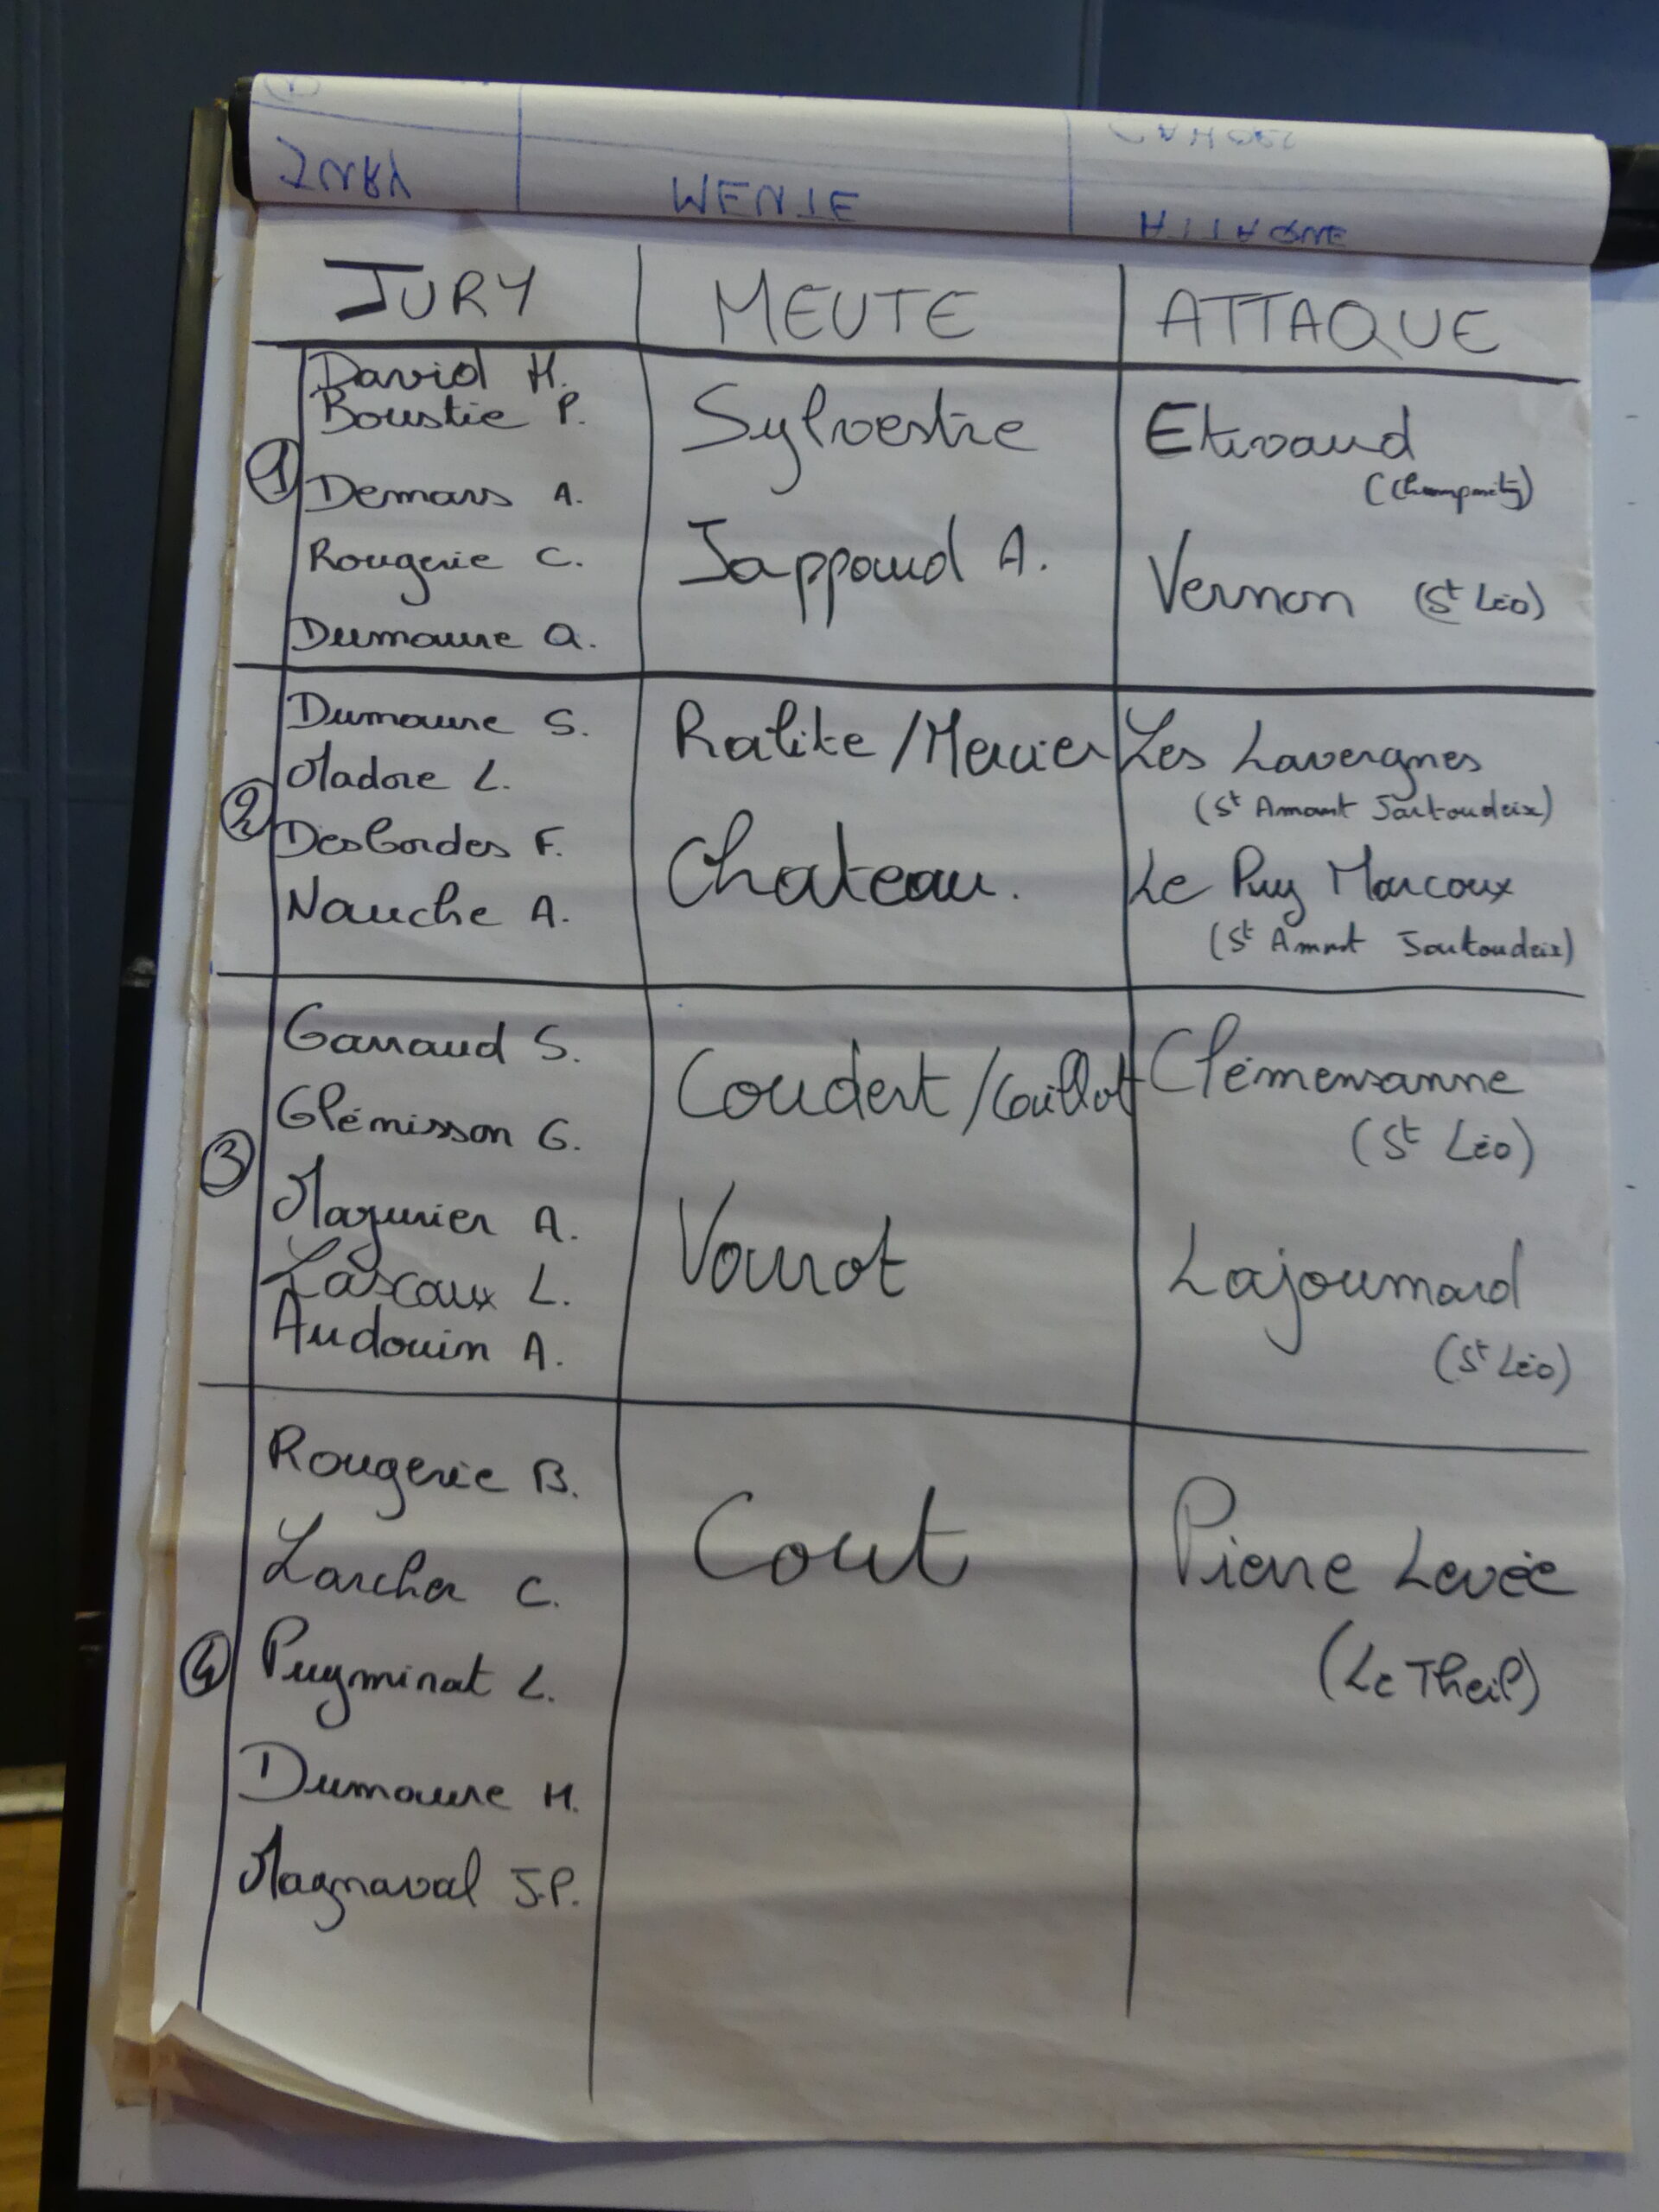 JURY MEUTE ATTAQUE
JURY MEUTE ATTAQUE
① David H.
Boustie P.
Demars A.
Rougerie C.
Dumaure Q.
Sylvestre
Jappaud A.
Etivaud
Vernon (St Léo)
② Dumaure S.
Madore L.
Desbordes F.
Nauche A.
Ralite / Mercier
Chateau.
Les Lavergnes
(St Amant Jartoudeix)
Le Puy Marcoux
(St Amant Jartoudeix)
③ Garraud S.
Glémisson G.
Mazurier A.
Lascaux L.
Audouin A.
Coudert / Couillot
Vourot
Clémensanne
(St Léo)
Lajoumard
(St Léo)
④ Rougerie B.
Larcher C.
Puyminat L.
Dumaure H.
Magnaval J.P.
Cout
Pierre Levée
(Le Theil)